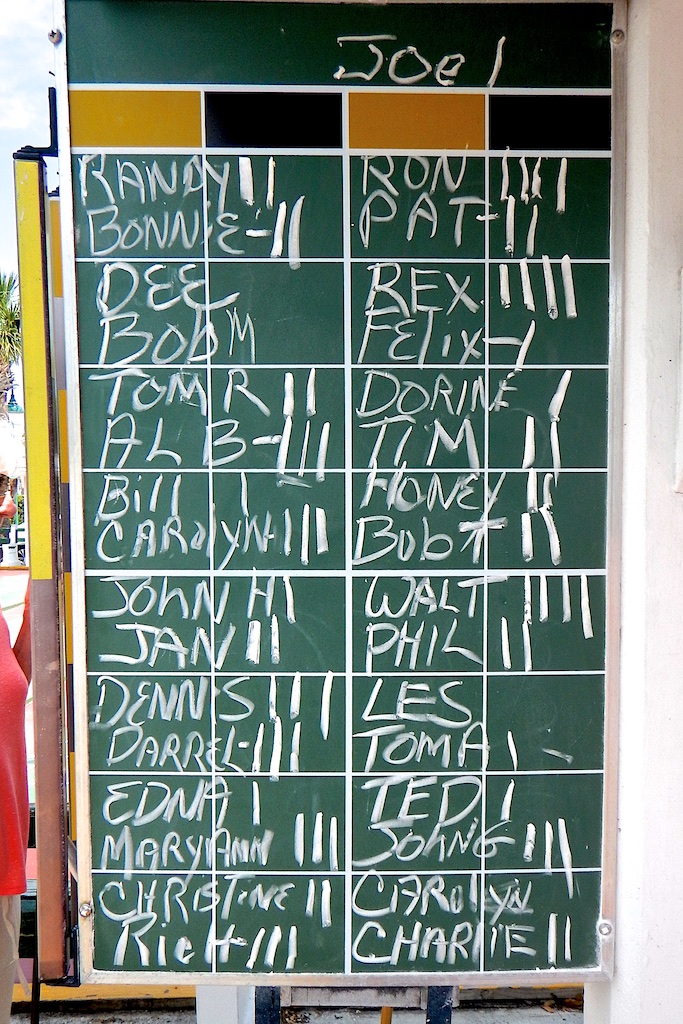 Joe |
RANDY || RON ||||
BONNIE - ||| PAT - ||
DEE REX ||||
BOB M FELIX - |
TOM R || DORINE |
AL B - ||| TIM ||
Bill | HONEY ||
CAROLYN - |||| BOB T ||
JOHN H | WALT ||||
JAN || PHIL ||
DENNIS ||| LES
DARREL - ||| TOM A |
EDNA | TED |
MARYANN ||| JOHN G |||
CHRISTINE || CAROLYN
Rich - ||| CHARLIE ||